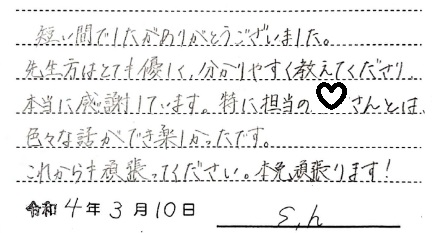 短い間でしたがありがとうございました。
先生方はとても優しく、分かりやすく教えてくださり、
本当に感謝しています。特に担当の♡さんとは、
色々な話ができ楽しかったです。
これからも頑張ってください。本免頑張ります!
令和 4 年 3 月 10 日 S.h